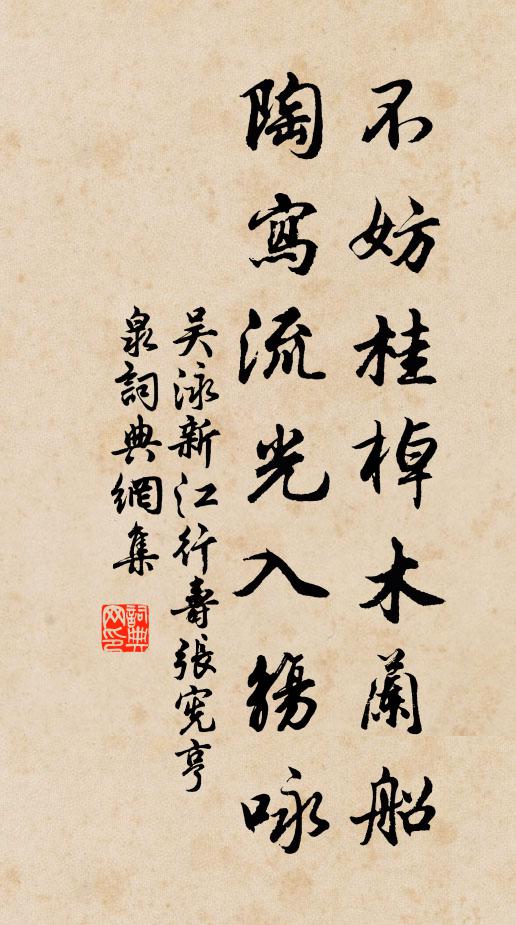 不妨桂棹木蘭船
陶寫流光入觴咏
吴泳新江行壽張寃亨
泉詞典網集
詞典網印